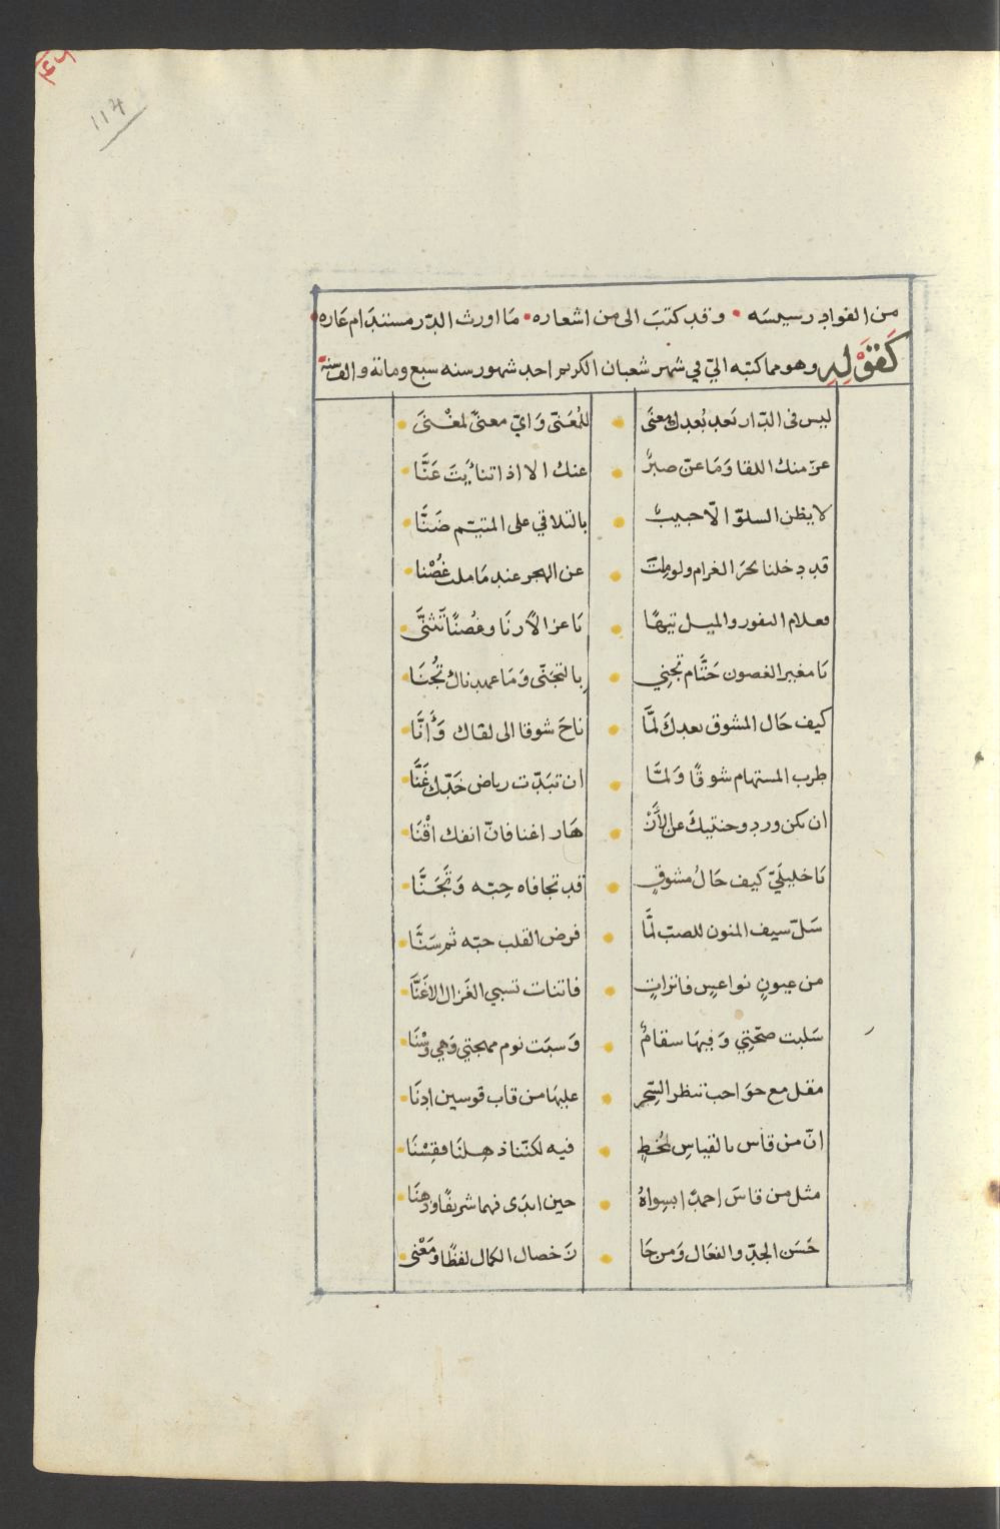 114
من الفواد رسيسه • وقد كتبَ الى من اشعاره • مَا اورث الدّر مستندَام عَاره •
كَقَوْلِهِ وهو مما كتبه اليّ في شهر شعبان الكريم احد شهور سنه سبع ومائة والف سنة
ليس فى الدّار بَعد بُعدك معنَى • للمُعَنّى وَايّ معنىً لمغْنىَ •
عزّ منك اللقا وَمَا عنّ صبرٌ • عنك الا اذا تنأيتَ عَنَّا •
لا يظن السلوّ الّا حبيبٌ • بالتلاقي على المتيّم ضَنَّا •
قد دخلنا بحرَ الغرام ولو ملتَ • عن الهجر عند مَا ملت غُصْنا •
فعلام النفور والميل تيهًا • يَا عزالاً رنَا وغُصنًا تَثنَّى •
يَا مغير الغصون حَتَّام تجنِي • بالتجنّى وَمَا عهدناك تُجْنَا •
كيف حَال المشوق بعدكَ لمَّا • ناحَ شوقا الى لقاك وَأَنَّا •
طرب المستهام شوقًا وَلمَّا • ان تبَدّت رياض خَدّك غَنَّا •
ان يكن ورد وجنتيكَ عن الأَزْ • هَار اغنا فانّ انفك اقْنَا •
يَا خليلَيّ كيف حَالُ مشوقٍ • قد تجافاه حِبّه وَتَجَنَّا •
سَلّ سيف المنون للصبّ لمَّا • فرض القلب حبّه ثم سَنَّا •
من عيونٍ نواعسٍ فاتراتٍ • فاتنات تسبي الغَزال الاغَنَّا •
سَلبت صحّتِي وَفيهَا سقامٌ • وَسبَت نوم مهجتي وَهي وسْنَا •
مقل مع حوَاجب تنظر السّحر • عليهَا من قاب قوسين ادنَا •
انّ من قاس بالقياسِ لمُخطٍ • فيه لكنّنا ذهلنَا فقِسْنَا •
مثل من قاسَ احمدًا بسِواهُ • حين ابدَى فهما شريفًا وذهنَا •
حَسَن الجدّ والفعَال وَمن حَا • زَ خصال الكمال لفظًا ومَعْنى •